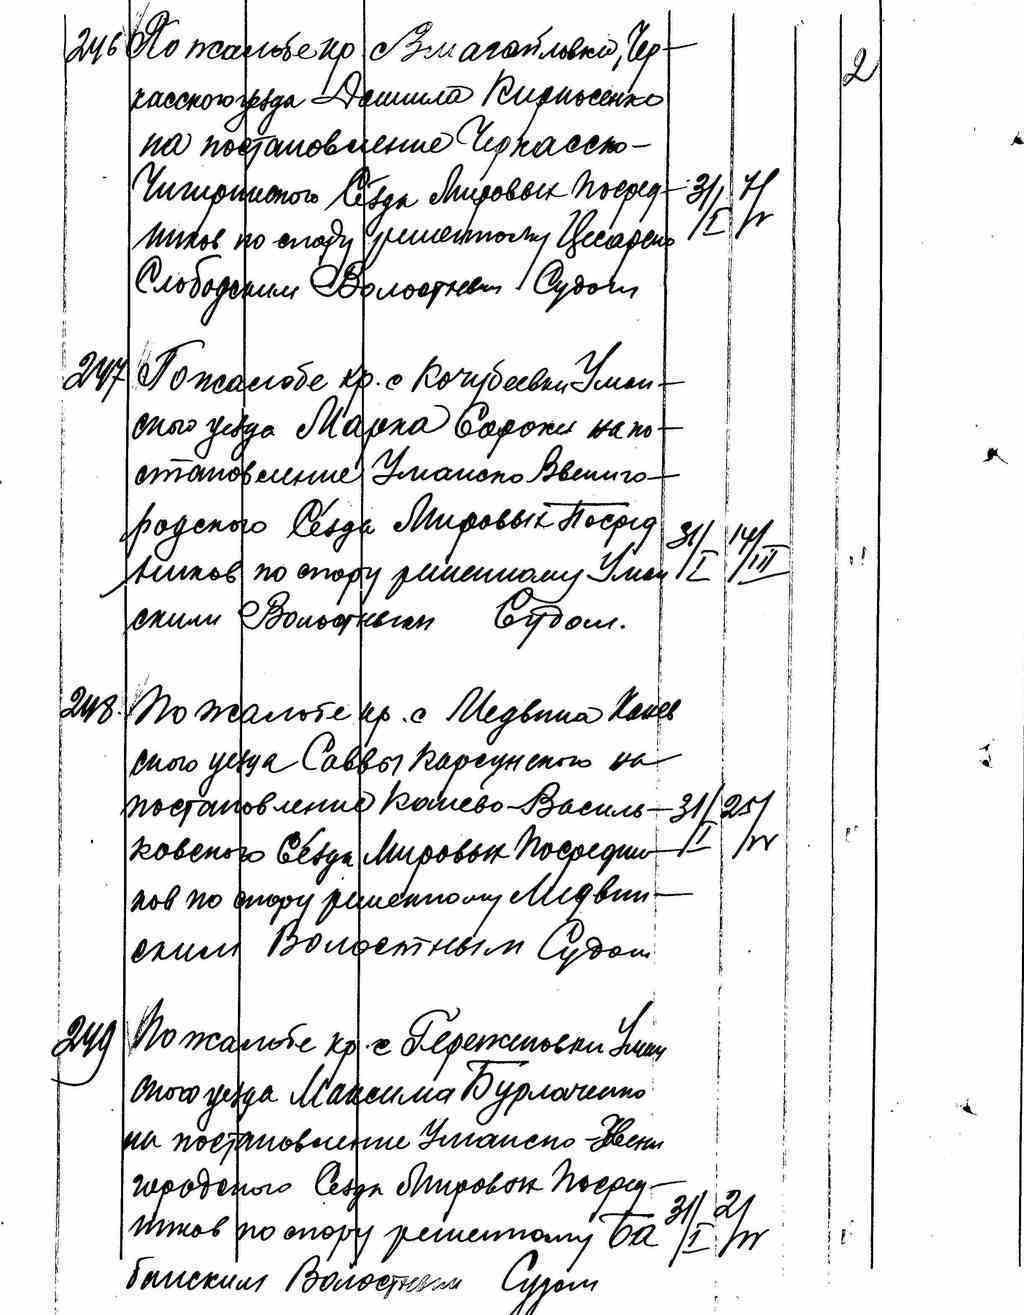 246 По жалобе кр. с Змагайловки, Чер- 2
касского уезда Даниила Кирносенко
на постановление Черкасско-
Чигиринского Съезда Мировых Посред- 31/I 7/IV
ников по спору решенному Цесарско
Слободским Волостным Судом
247 По жалобе кр. с Кочубеевки Уман-
ского уезда Марка Сороки на по-
становление Уманско Звениго-
родского Съезда Мировых Посред 31/I 14/III
ников по спору решенному Уман
ским Волостным Судом.
248. По жалобе кр. с Медвина Канев
ского уезда Саввы Карсунского на
постановление Канево-Василь- 31/I 25/IV
ковского Съезда Мировых Посредни
ков по спору решенному Медвин-
ским Волостным Судом
249 По жалобе кр. с Гереженовки Уман
ского уезда Максима Бурлаченко
на постановление Уманско-Звени
городского Съезда Мировых Посред-
ников по спору решенному Ба 31/I 2/IV
банским Волостным Судом